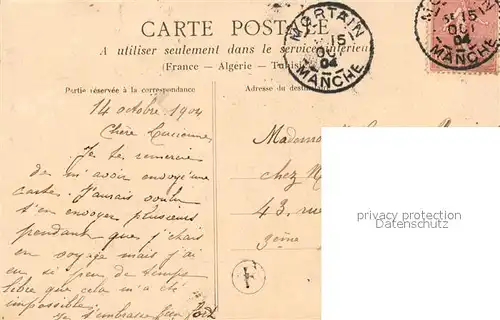 CARTE POSTALE
A utiliser seulement dans le service intérieur
(France - Algerie - Tunisie)
Partie réservée à la correspondance
Adresse du destin
MORTAIN
15
OC
04
MANCHE
MO
15
OC
04
MANCHE
14 octobre 1904
Chère Lucienne
Je te remercie
de m'avoir envoyé une
carte. J'aurais voulu
t'en envoyer plusieurs
pendant que j'étais
en voyage mais j'ai
eu si peu de temps
libre que cela m'a été
impossible.
Je t'embrasse
Mademo
chez M
43, rue
9ème
privacy protection
www.delcampe.net